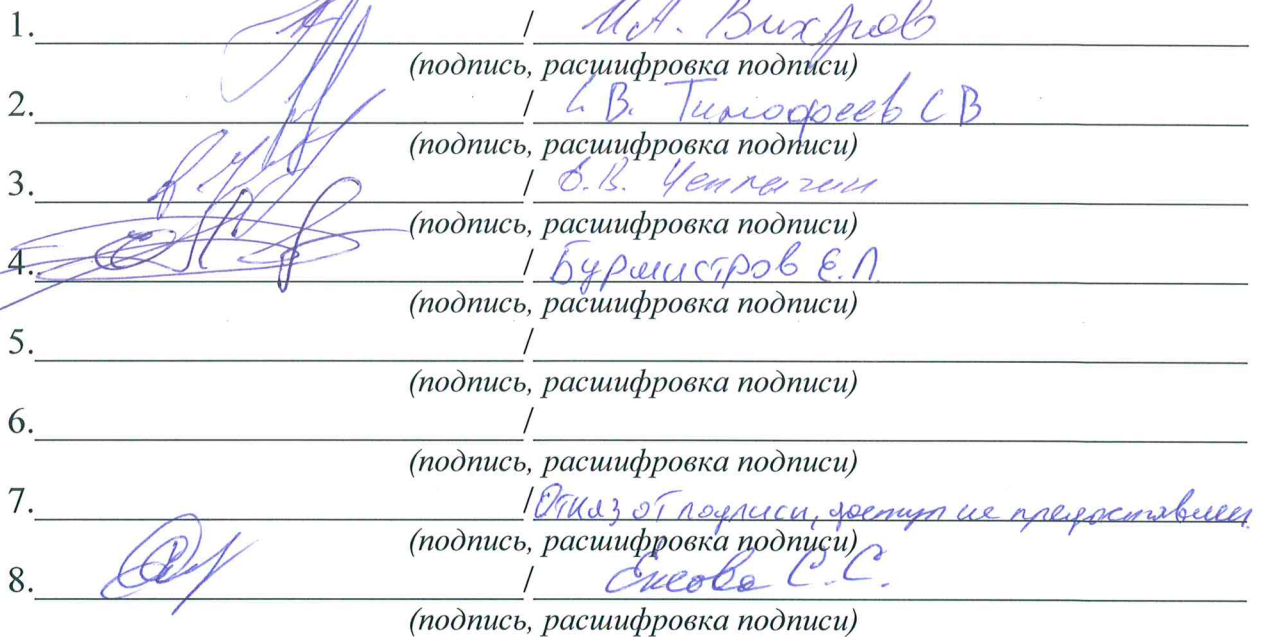 1. / И.А. Вихров
(подпись, расшифровка подписи)
2. / С.В. Тимофеев С В
(подпись, расшифровка подписи)
3. / Е.В. Чеплагин
(подпись, расшифровка подписи)
4. / Бурмистров Е.Л.
(подпись, расшифровка подписи)
5. /
(подпись, расшифровка подписи)
6. /
(подпись, расшифровка подписи)
7. / Отказ от подписи, доступ не предоставлен
(подпись, расшифровка подписи)
8. / С.С.
(подпись, расшифровка подписи)